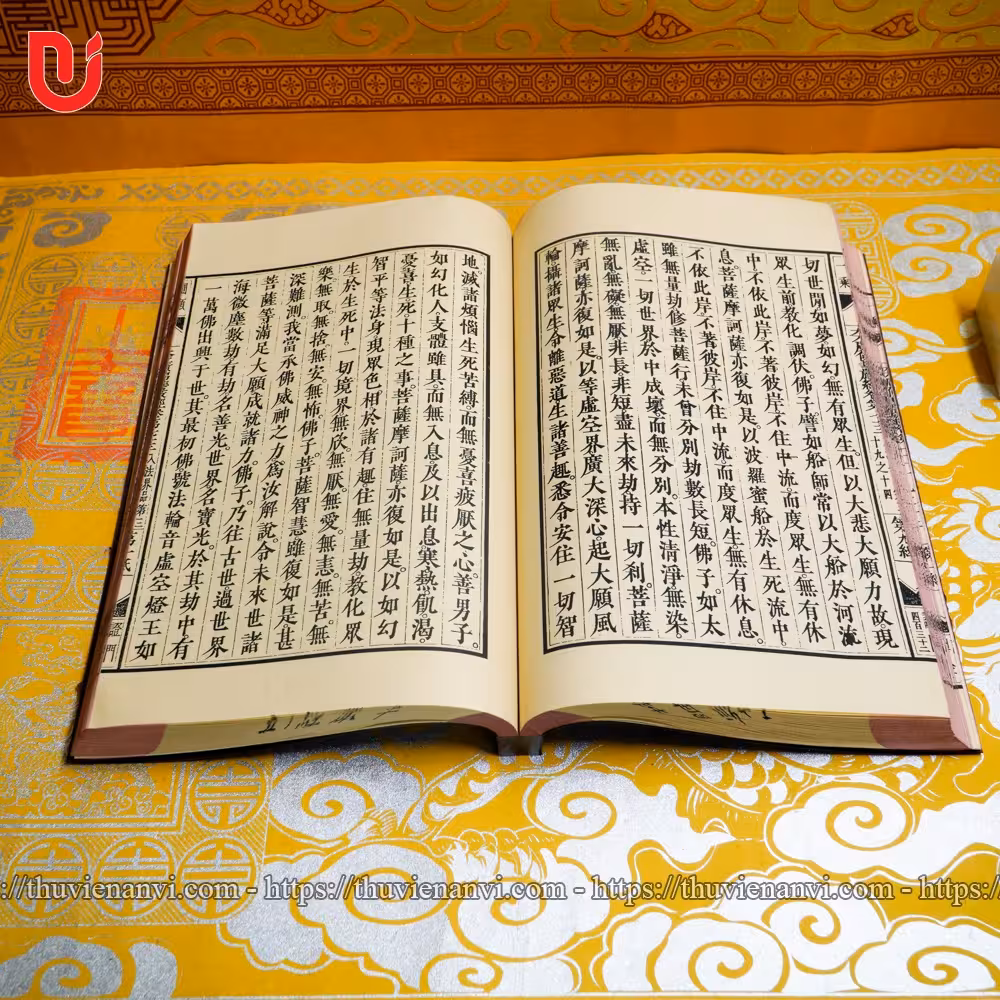 切世間如夢如幻。無有眾生。但以大悲大願力故。現
眾生前。教化調伏。佛子。譬如船師。常以大船。於河流
中。不依此岸。不著彼岸。不住中流。而度眾生。無有休
息。菩薩摩訶薩亦復如是。以波羅蜜船。於生死流中。
不依此岸。不著彼岸。不住中流。而度眾生。無有休息。
雖無量劫修菩薩行。未曾分別劫數長短。佛子。如太
虛空。一切世界於中成壞。而無分別。本性清淨。無染。
無亂。無礙。無厭。非長非短。盡未來劫。持一切剎。菩薩
摩訶薩亦復如是。以等虛空界廣大深心。起大願風
輪。攝諸眾生。令離惡道。生諸善趣。悉令安住一切智
四百三十三
地。滅諸煩惱生死苦縛。而無憂喜疲厭之心。善男子。
如幻化人。支體雖具。而無入息及以出息。寒熱飢渴。
憂喜生死。十種之事。菩薩摩訶薩亦復如是。以如幻
智平等法身。現眾色相。於諸有趣。住無量劫。教化眾
生。於生死中。一切境界。無欣。無厭。無愛。無恚。無苦。無
樂。無取。無捨。無安。無怖。佛子。菩薩智慧雖復如是甚
深難測。我當承佛威神之力。為汝解說。令未來世諸
菩薩等。滿足大願。成就諸力。佛子。乃往古世。過世界
海微塵數劫。有劫名善光。世界名寶光。於其劫中。有
一萬佛出興于世。其最初佛。號法輪音虛空燈王如
https://thuvienanvi.com - https://thuvienanvi.com - https://thuvienanvi.com